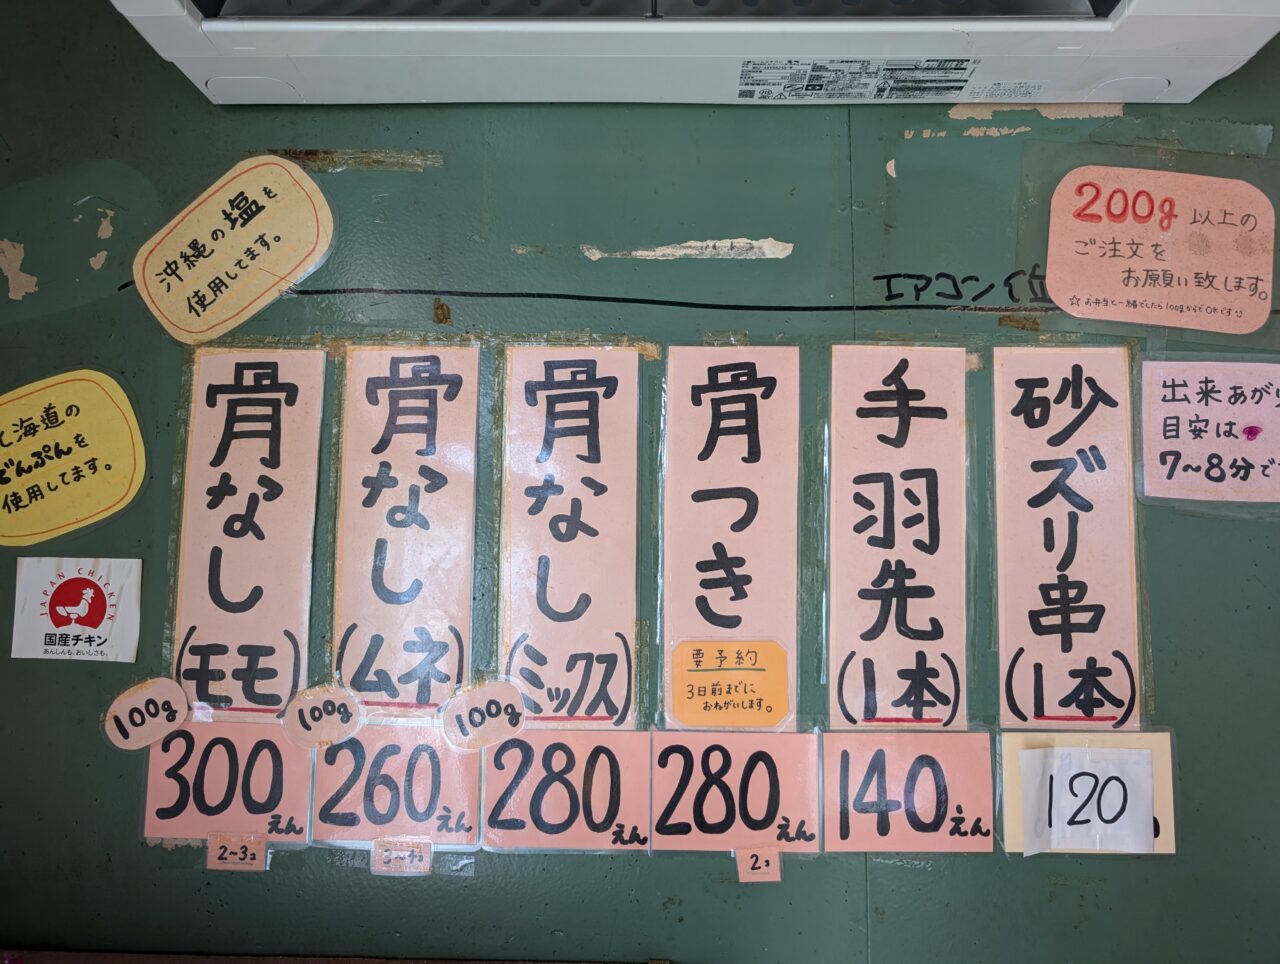 沖縄の塩を
使用してます。
海道の
どんぷんを
使用してます。
JAPAN CHICKEN
国産チキン
あんしんも、おいしさも。
エアコン位
200g 以上の
ご注文を
お願い致します。
☆お弁当と一緒でしたら100gからでOKです
出来あがり
目安は
7~8分で
骨なし
(モモ)
100g
300えん
2~3コ
骨なし
(ムネ)
100g
260えん
3~4コ
骨なし
(ミックス)
100g
280えん
骨つき
要予約
3日前までに
おねがいします。
280えん
2コ
手羽先
(1本)
140えん
砂ズリ串
(1本)
120